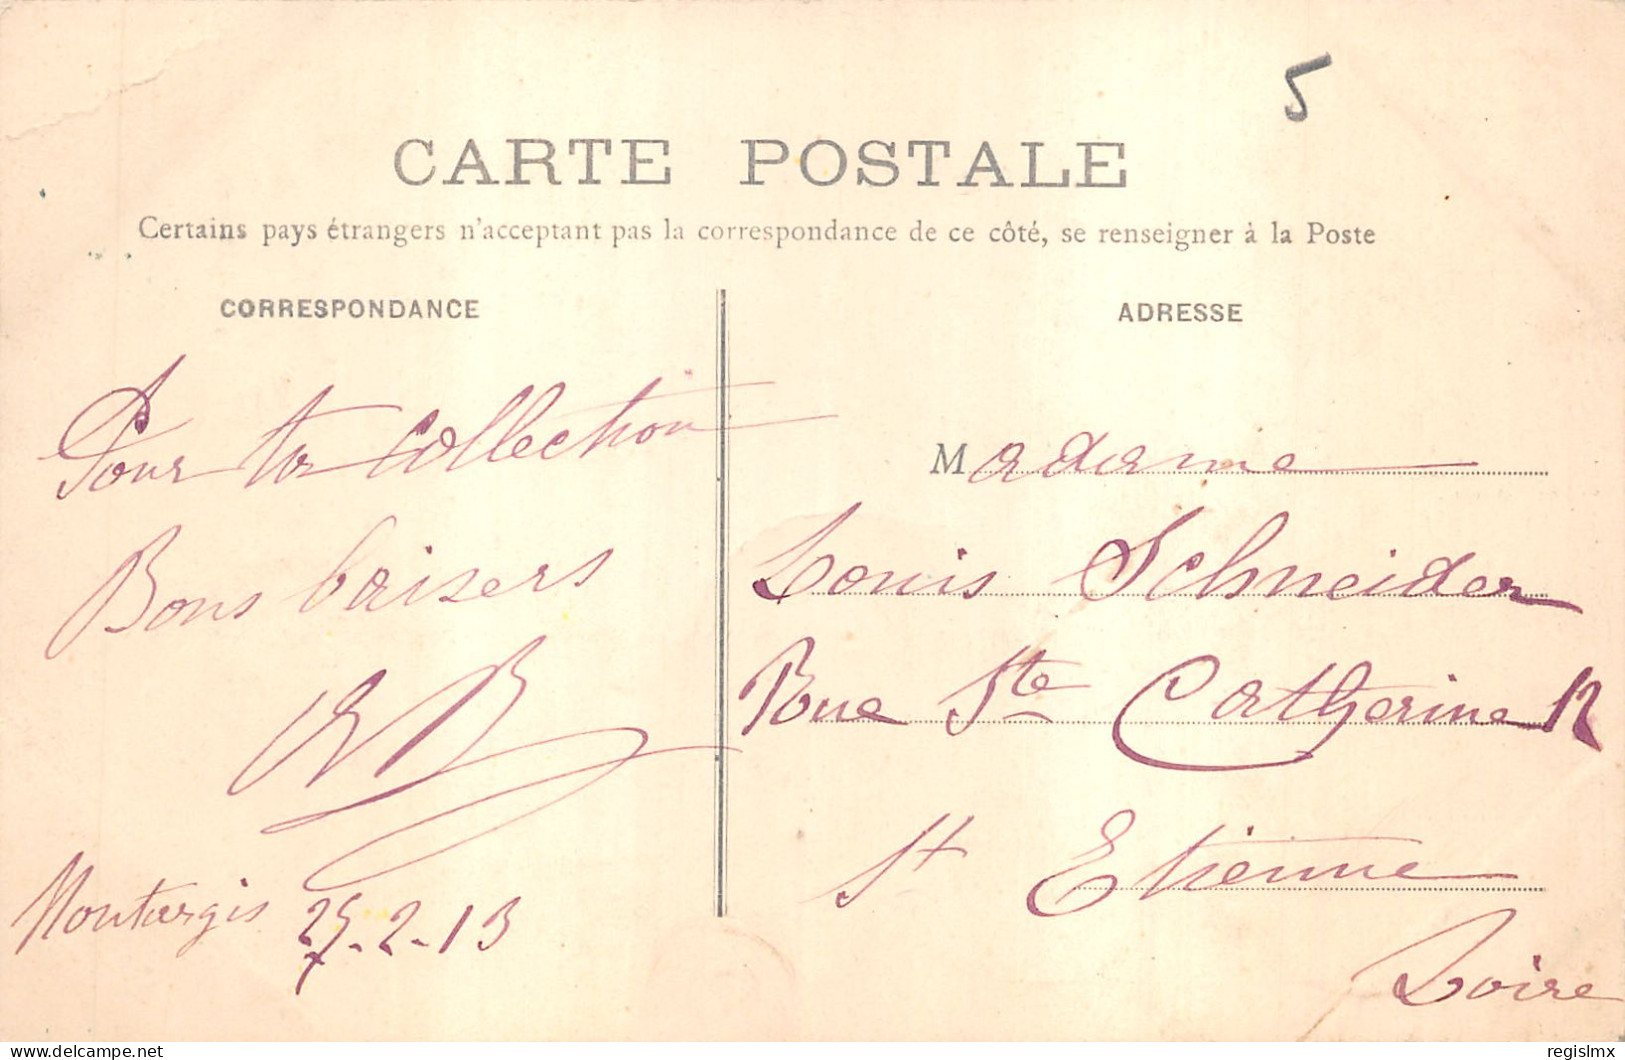 5
CARTE POSTALE
Certains pays étrangers n'acceptant pas la correspondance de ce côté, se renseigner à la Poste
CORRESPONDANCE
Pour ta collection
Bons baisers
Montargis 25-2-13
ADRESSE
Madame
Louis Schneider
Roue Ste Catherine 12
St Etienne
Loire
delcampe.net
regislmx